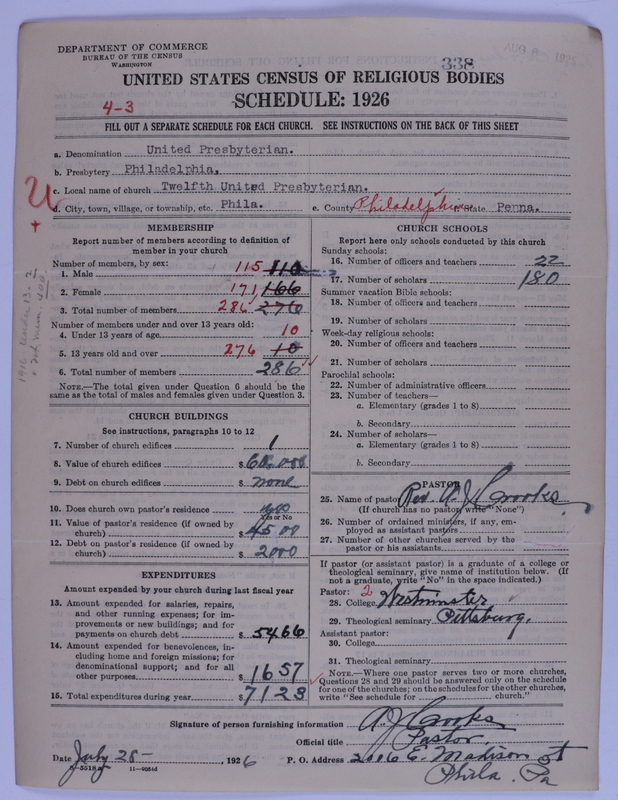 DEPARTMENT OF COMMERCE
BUREAU OF THE CENSUS
WASHINGTON
338
UNITED STATES CENSUS OF RELIGIOUS BODIES
4-3
SCHEDULE: 1926
FILL OUT A SEPARATE SCHEDULE FOR EACH CHURCH. SEE INSTRUCTIONS ON THE BACK OF THIS SHEET
a. Denomination United Presbyterian.
b. Presbytery Philadelphia.
c. Local name of church Twelfth United Presbyterian.
d. City, town, village, or township, etc. Phila. e. County Philadelphia State Penna.
MEMBERSHIP
Report number of members according to definition of
member in your church
Number of members, by sex:
1. Male 115 110
2. Female 171 166
3. Total number of members 286 276
Number of members under and over 13 years old:
4. Under 13 years of age 10
5. 13 years old and over 276 10
6. Total number of members 286
NOTE.—The total given under Question 6 should be the
same as the total of males and females given under Question 3.
CHURCH BUILDINGS
See instructions, paragraphs 10 to 12
7. Number of church edifices 1
8. Value of church edifices $ 60.000
9. Debt on church edifices $ none
10. Does church own pastor's residence
Yes or No
11. Value of pastor's residence (if owned by
church) $ 4500
12. Debt on pastor's residence (if owned by
church) $ 2000
EXPENDITURES
Amount expended by your church during last fiscal year
13. Amount expended for salaries, repairs,
and other running expenses; for im-
provements or new buildings; and for
payments on church debt $ 5466
14. Amount expended for benevolences, in-
cluding home and foreign missions; for
denominational support; and for all
other purposes $ 1657
15. Total expenditures during year $ 7123
CHURCH SCHOOLS
Report here only schools conducted by this church
Sunday schools:
16. Number of officers and teachers 22
17. Number of scholars 180
Summer vacation Bible schools:
18. Number of officers and teachers
19. Number of scholars
Week-day religious schools:
20. Number of officers and teachers
21. Number of scholars
Parochial schools:
22. Number of administrative officers
23. Number of teachers—
a. Elementary (grades 1 to 8)
b. Secondary
24. Number of scholars—
a. Elementary (grades 1 to 8)
b. Secondary
PASTOR
25. Name of pastor Rev. A. J. Crooks
(If church has no pastor, write "None")
26. Number of ordained ministers, if any, em-
ployed as assistant pastors
27. Number of other churches served by the
pastor or his assistants
If pastor (or assistant pastor) is a graduate of a college or
theological seminary, give name of institution below. (If
not a graduate, write "No" in the space indicated.)
Pastor: 2
28. College Westminster
29. Theological seminary Pittsburg.
Assistant pastor:
30. College
31. Theological seminary
NOTE.—Where one pastor serves two or more churches,
Questions 28 and 29 should be answered only on the schedule
for one of the churches; on the schedules for the other churches,
write "See schedule for church."
Signature of person furnishing information A J Crooks
Official title Pastor
Date July 28- , 1926 P. O. Address 2006 E. Madison St
Phila. Pa
11—9034d